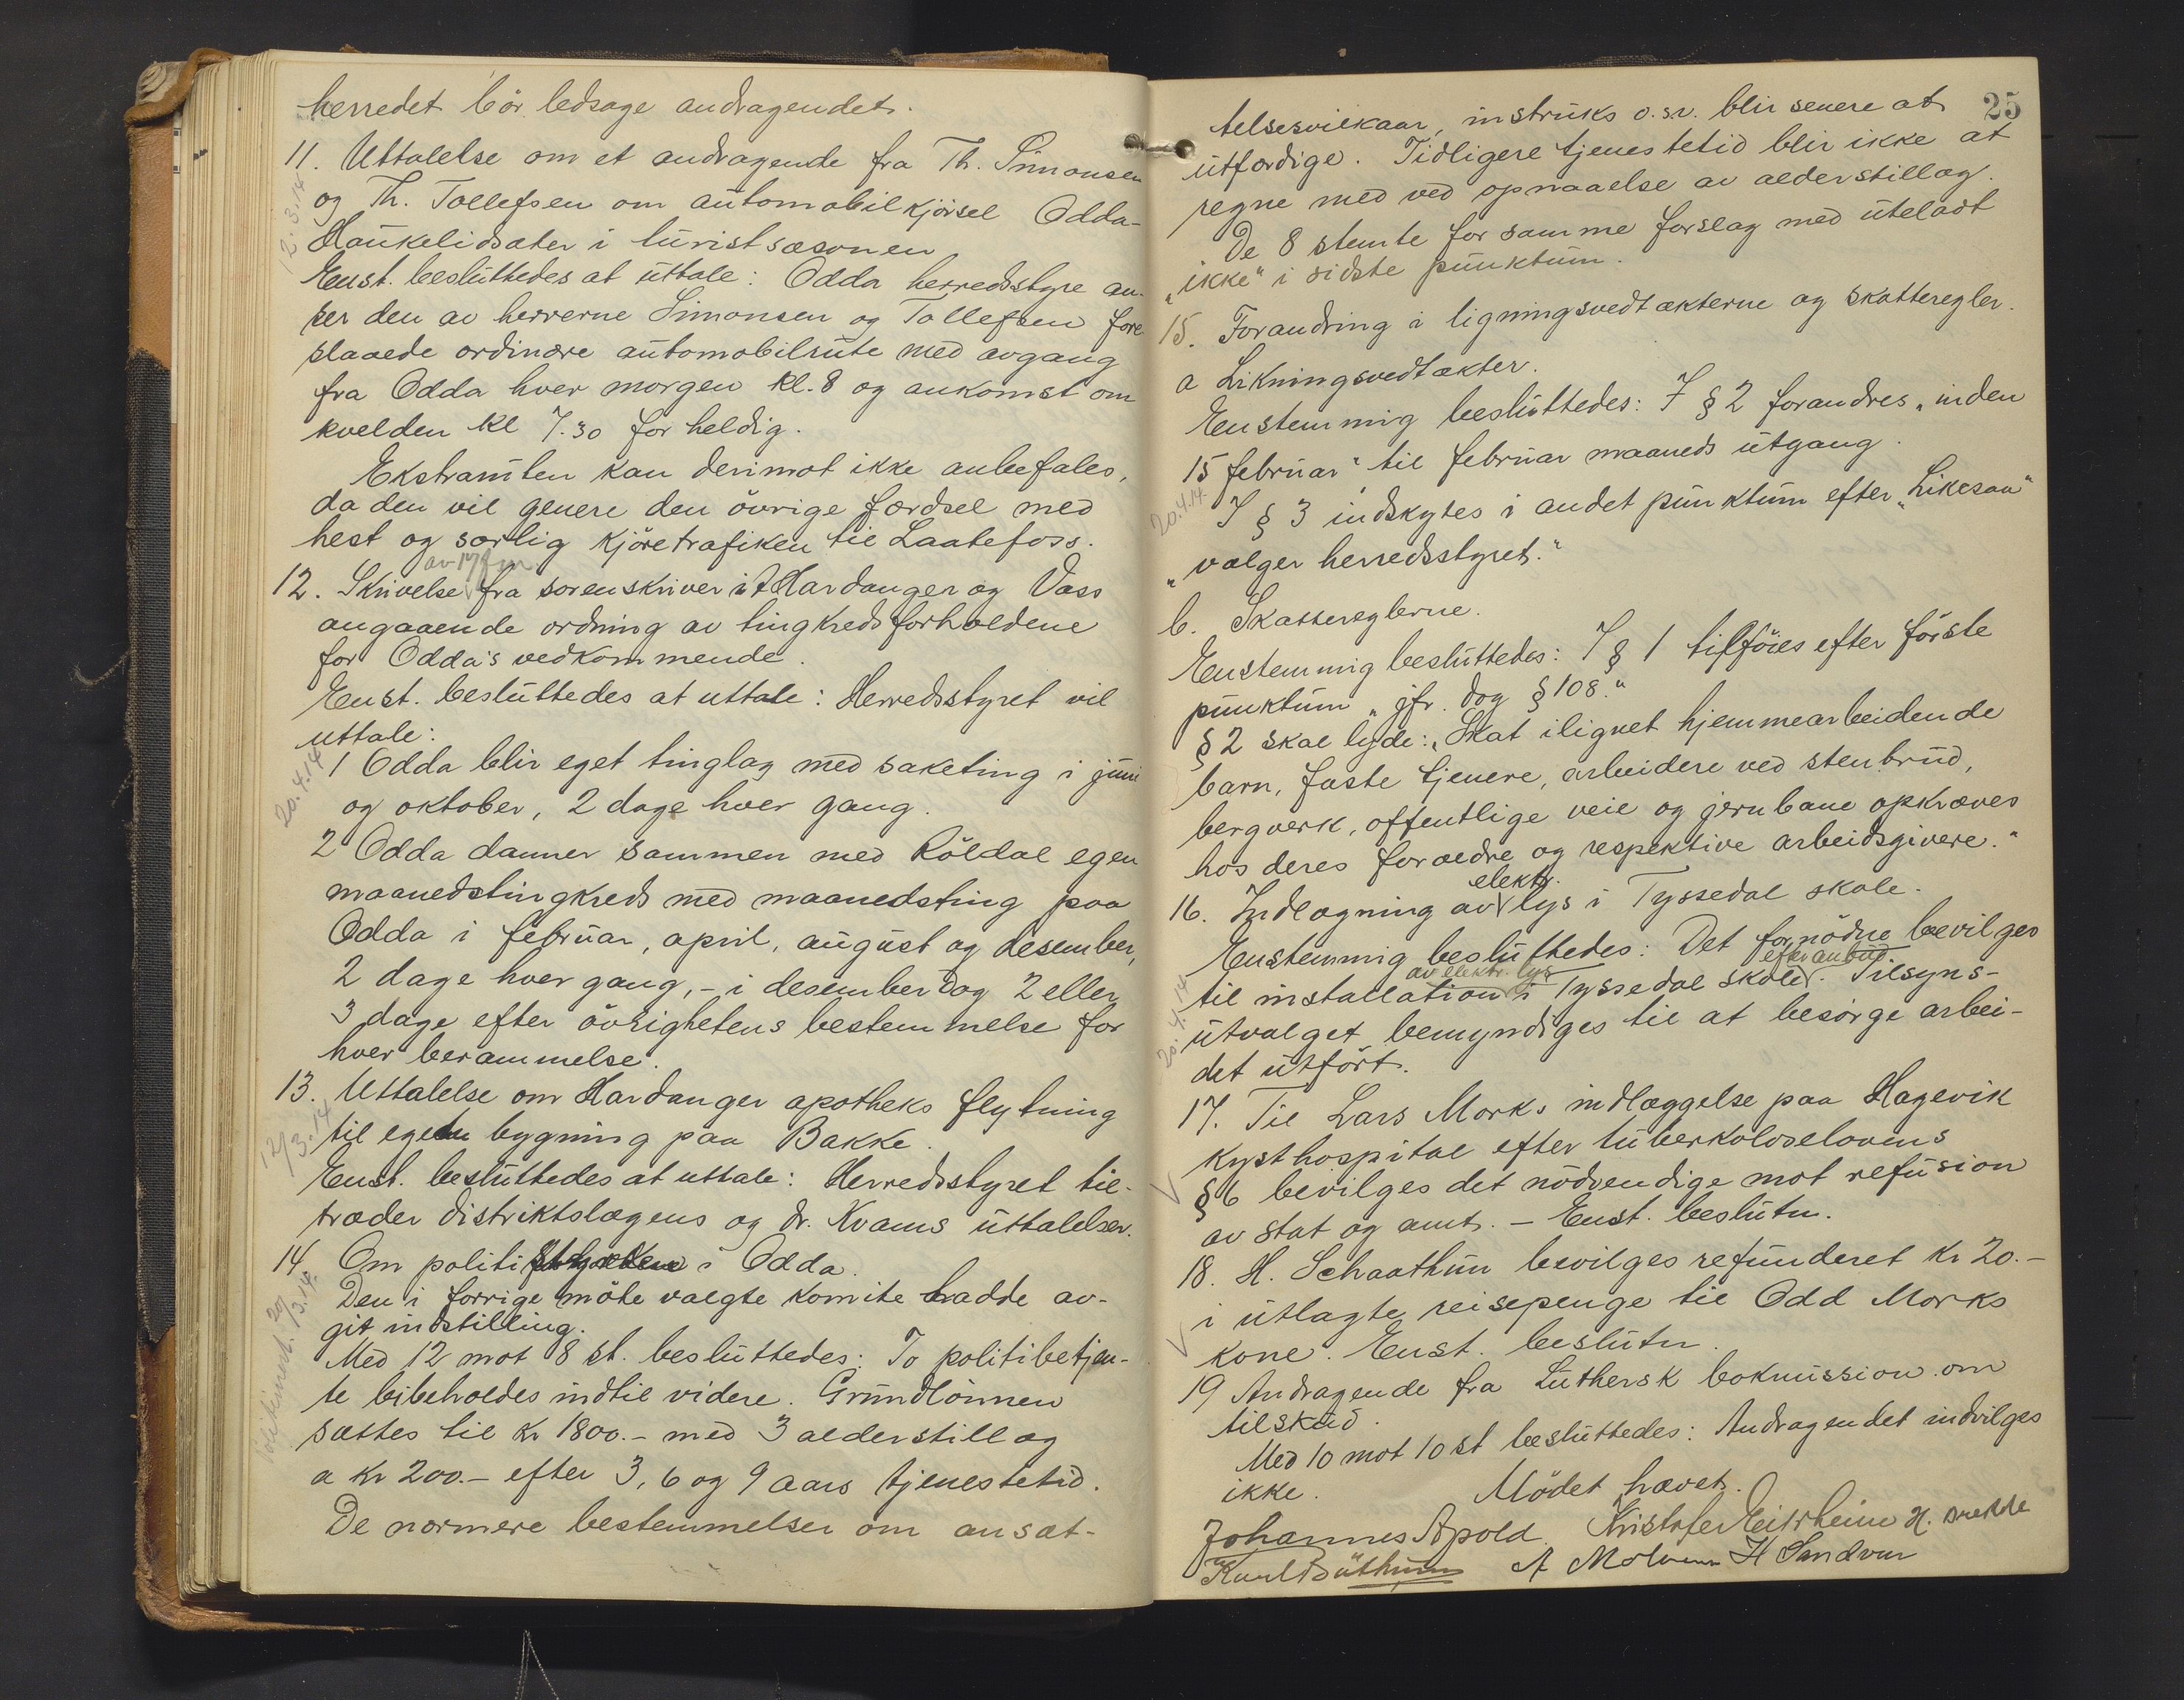 herredet bör ledsage andragendet.
11. Uttalelse om et andragende fra Th. Simonsen
og Th. Tollefsen om automobilkjörsel Odda-
Haukelidsæter i turistsæsonen
12.3.14
Enst. besluttedes at uttale: Odda herredsstyre an-
ser den av herrerne Simonsen og Tollefsen fore
slaaede ordinære automobilrute med avgang
fra Odda hver morgen kl. 8 og ankomst om
kvelden kl 7.30 for heldig.
Ekstraruten kan derimot ikke anbefales,
da den vil genere den övrige færdsel med
hest og særlig kjöretrafiken til Laatefoss.
12. Skrivelse av 17/ fra sorenskriver i Hardanger og Voss
angaaende ordning av tingkredsforholdene
for Odda's vedkommende.
Enst. besluttedes at uttale: Herredsstyret vil
uttale:
20.4.14
1 Odda blir eget tinglag med saketing i juni
og oktober, 2 dage hver gang.
2 Odda danner sammen med Röldal egen
maanedstingkreds med maanedsting paa
Odda i februar, april, august og desember,
2 dage hver gang, - i desember dog 2 eller
3 dage efter övrighetens bestemmelse for
hver berammelse.
13. Uttalelse om Hardanger apotheks flytning
til egen bygning paa Bakke.
12/3.14
Enst. besluttedes at uttale: Herredsstyret til-
træder distriktslægens og dr. Kvams uttalelser.
14 Om politi i Odda.
Den i forrige möte valgte komite hadde av-
git indstilling.
20/3.14.
Med 12 mot 8 st. besluttedes: To politibetjen-
te bibeholdes indtil videre. Grundlönnen
sættes til kr 1800.- med 3 alderstillæg
a kr 200.- efter 3, 6 og 9 aars tjenestetid.
De nærmere bestemmelser om ansæt-
25
telsesvilkaar, instruks o.sv. blir senere at
utfærdige. Tidligere tjenestetid blir ikke at
regne med ved opnaaelse av alderstillæg.
De 8 stemte for samme forslag med utelatt
„ikke“ i sidste punktum.
15. Forandring i ligningsvedtækterne og skatteregler.
a Likningsvedtækter.
Enstemmig besluttedes: I § 2 forandres „inden
15 februar“ til februar maaneds utgang.
20.4.14.
I § 3 indskytes i andet punktum efter „Likesaa“
„vælger herredsstyret.“
b. Skattereglerne.
Enstemmig besluttedes: I § 1 tilföies efter förste
punktum „jfr. dog § 108.“
§ 2 skal lyde: „Skat ilignet hjemmearbeidende
barn, faste tjenere, arbeidere ved stenbrud,
bergverk, offentlige veie og jernbane opkræves
hos deres forældre og respektive arbeidsgivere.“
16. Indlægning av elektr. lys i Tyssedal skole.
Enstemmig besluttedes: Det fornödne bevilges
til installation av elektr. lys i Tyssedal skole efter anbud. Tilsyns-
utvalget bemyndiges til at besörge arbei-
det utfört.
20.4.14
17. Til Lars Morks indlæggelse paa Hagevik
kysthospital efter tuberkuloselovens
§ 6 bevilges det nödvendige mot refusion
av stat og amt. - Enst. beslutn.
18. H. Schaathun bevilges refunderet kr 20.-
i utlagte reisepenge til Odd Morks
kone. Enst. beslutn.
19 Andragende fra Luthersk bokmission om
tilskud.
Med 10 mot 10 st besluttedes: Andragendet indvilges
ikke.
Mödet hævet.
Johannes Apold. Kristofer Eitrheim
H Sandven